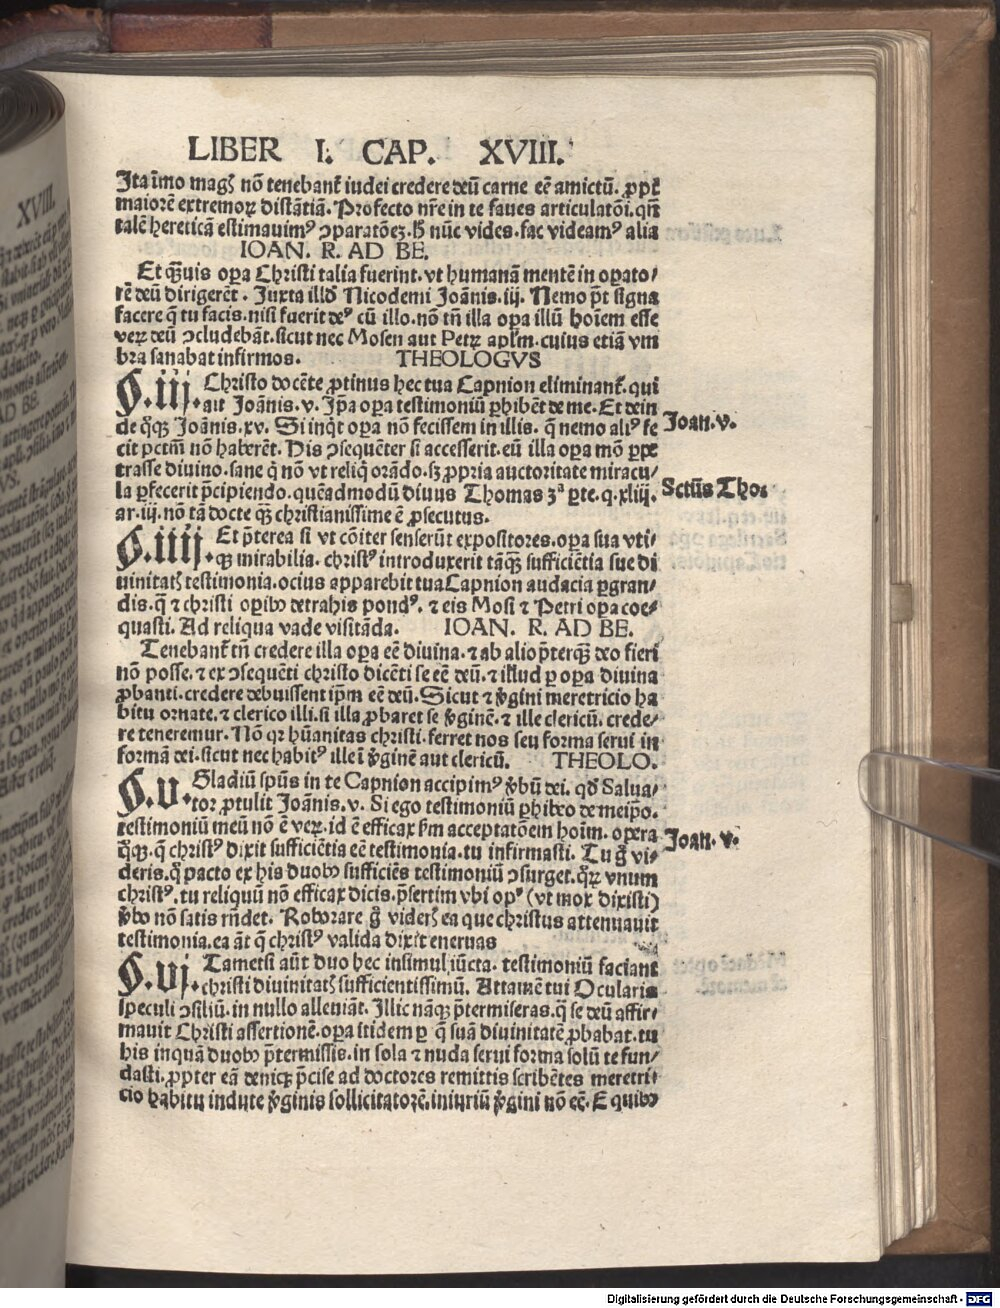 LIBER I. CAP. XVIII.
Ita īmo magꝭ nō tenebant᷑ iudei credere deū carne eē amictū. ꝓpt᷑
maiorē extremoꝝ distātiā. Profecto nr̄e in te faues articulatōi. qm̄
talē hereticā estimauimꝰ ꝯparatōeꝫ. h̄ nūc vides. fac videamꝰ alia
IOAN. R. AD BE.
Et qͣ̄uis oꝑa Christi talia fuerint. vt humanā mentē in oꝑato/
rē deū dirigerēt. Juxta illd̄ Nicodemi Joānis. iij. Nemo p̄t signa
facere q̄ tu facis. nisi fuerit deꝰ cū illo. nō tn̄ illa oꝑa illū hoīem esse
veꝝ deū ꝯcludebāt. sicut nec Mosen aut Petꝝ apl̄m. cuius etiā vm
bra sanabat infirmos. THEOLOGVS
§. iij. Christo docēte ꝓtinus hec tua Capnion eliminant᷑. qui
ait Joānis. v. Ip̄a oꝑa testimoniū ꝑhibēt de me. Et dein
de qͦꝫ Joānis. xv. Si inqͥt oꝑa nō fecissem in illis. q̄ nemo aliꝰ fe
cit pctm̄ nō haberēt. His ꝯsequēter si accesserit. eū illa oꝑa mō ꝑpe
trasse diuino. sane q̄ nō vt reliq̄ orādo. sꝫ ꝓpria auctoritate miracu/
la ꝑfecerit p̄cipiendo. quēadmodū diuus Thomas 3ª ꝑte. q. xliij.
ar. iij. nō tā docte qͣꝫ christianissime ē ꝓsecutus.
§. iiij. Et p̄terea si vt cōiter senserūt expositores. oꝑa sua vti/
qꝫ mirabilia. christꝰ introduxerit tāqͣꝫ sufficiētia sue di
uinitatꝭ testimonia. ocius apparebit tua Capnion audacia ꝑgran/
dis. q̄ ⁊ christi oꝑibꝰ detrahis pondꝰ. ⁊ eis Mosi ⁊ Petri oꝑa coe/
quasti. Ad reliqua vade visitāda. IOAN. R. AD BE.
Tenebant᷑ tn̄ credere illa oꝑa eē diuina. ⁊ ab alio p̄terqͣꝫ deo fieri
nō posse. ⁊ ex ꝯsequēti christo dicēti se eē deū. ⁊ illud ꝑ oꝑa diuina
ꝓbanti. credere debuissent ip̄m eē deū. Sicut ⁊ v̓gini meretricio ha
bitu ornate. ⁊ clerico illi. si illa ꝓbaret se v̓ginē. ⁊ ille clericū. crede/
re teneremur. Nō qꝛ hūanitas christi. ferret nos seu forma serui in
formā dei. sicut nec habitꝰ ille ī v̓ginē aut clericū. THEOLO.
§. v. Gladiū spūs in te Capnion accipimꝰ v̓bū dei. qd̄ Salua/
tor ꝓtulit Joānis. v. Si ego testimoniū ꝑhibeo de meip̄o.
testimoniū meū nō ē veꝝ. id ē efficax ẜm acceptatōem hoīm. opera
qͦꝫ. q̄ christꝰ dixit sufficiētia eē testimonia. tu infirmasti. Tu gͦ vi/
deris. qͦ pacto ex his duobꝰ sufficiēs testimoniū ꝯsurget. qͦꝝ vnum
christꝰ. tu reliquū nō efficax dicis. p̄sertim vbi opꝰ (vt mox dixisti)
v̓bo nō satis rn̄det. Roborare gͦ viderꝭ ea que christus attenuauit
testimonia. ea āt q̄ christꝰ valida dixit eneruas
§. vj. Tametsi aūt duo hec insimul iūcta. testimoniū faciant
christi diuinitatꝭ sufficientissimū. Attamē tui Ocularis
speculi ꝯsiliū. in nullo alleuiāt. Illic nāqꝫ p̄termiseras. q̄ se deū affir/
mauit Christi assertionē. oꝑa itidem ꝑ q̄ suā diuinitatē ꝓbabat. tu
his inquā duobꝰ p̄termissis. in sola ⁊ nuda serui forma solū te fun/
dasti. ꝓpter eā deniqꝫ p̄cise ad doctores remittis scribētes meretri/
cio habitu indute v̓ginis sollicitatorē. iniuriū v̓gini nō eē. E quibꝰ
Joan. v.
Sctūs Tho.
Joan. v.
Digitalisierung gefördert durch die Deutsche Forschungsgemeinschaft - DFG